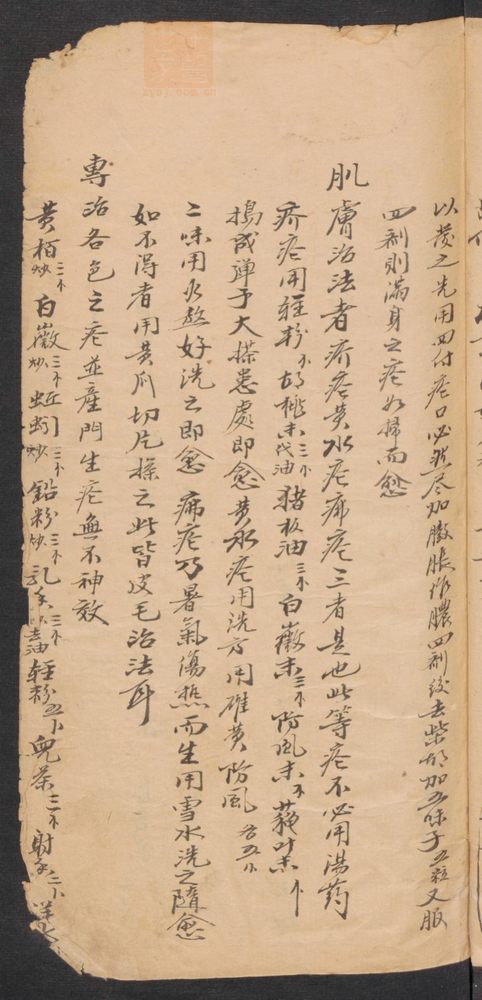 以发之先用四付疮口必然尽加腹胀作脓四剂后去柴胡加五味子五粒又服
四剂则满身之疮如掃而愈
肌膚治法者疥疮黄水疮痱疮三者是也此等疮不必用湯药
疥疮用軽粉 胡桃末代油 猪板油三个 白薇末三个 防風末 蘓叶末
搗成弹子大搽患處即愈黄水疮用洗方用雄黄防風各五
二味用水熬好洗之即愈痱疮乃暑氣傷熱而生用雪水洗之隨愈
如不得者用黄瓜切片搽之此皆皮毛治法耳
專治各色之疮並產門生疮無不神效
黄栢炒三个 白薇炒三个 蚯蚓炒三个 鉛粉炒三个 乳香去油三个 軽粉五 兒茶三个 射香三